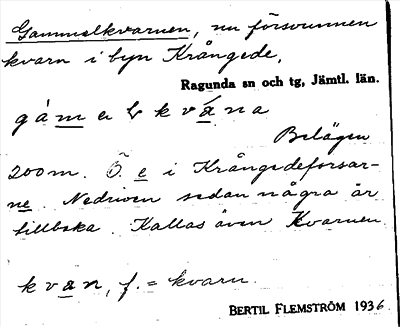 Gammelkvarnen, nu försvunnen
kvarn i byn Krångede,
Ragunda sn och tg, Jämtl. län.
gámelkvána
Belägen
200 m. Ö. e i Krångedeforsar-
ne. Nedriven sedan några år
tillbaka. Kallas även Kvarnen.
kván, f. = kvarn.
BERTIL FLEMSTRÖM 1936